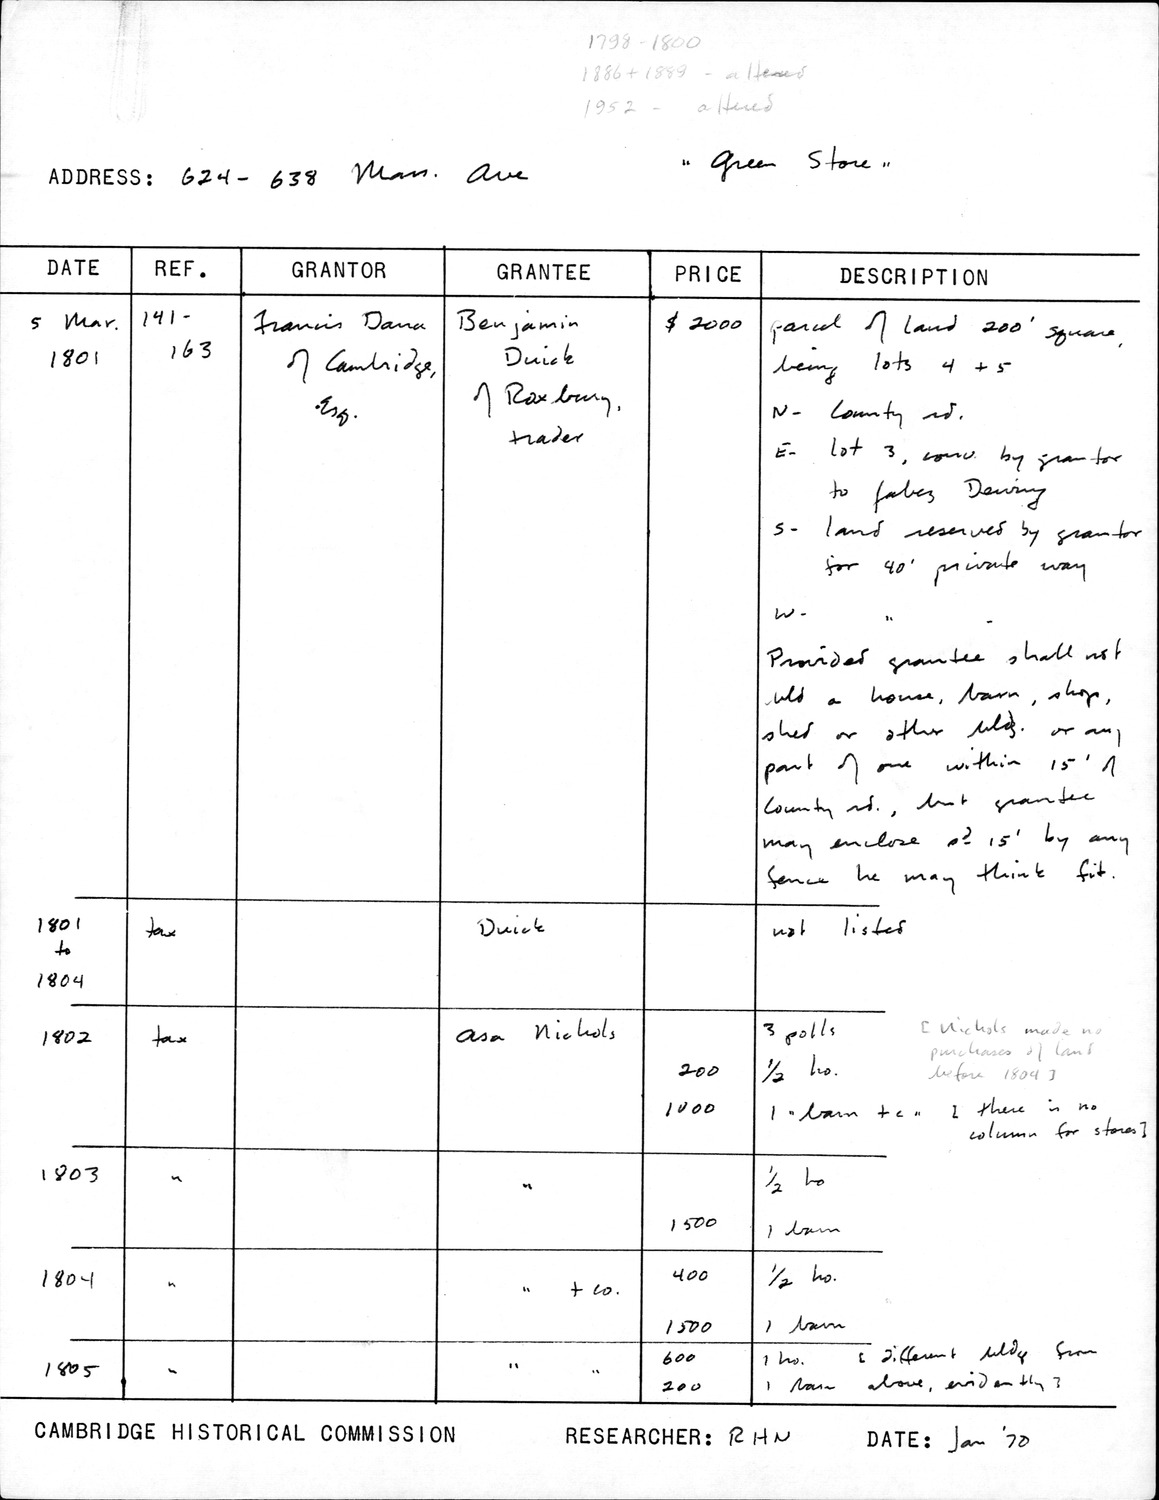 1798-1800
1886+1889 - altered
1952 - altered
ADDRESS: 624-638 Mass. Ave "Green Store"
DATE REF. GRANTOR GRANTEE PRICE DESCRIPTION
5 Mar. 141- Francis Dana Benjamin $2000 parcel of land 200' square,
1801 163 of Cambridge, Duick being lots 4 + 5
Esq. of Roxbury, N- County rd.
trader E- lot 3, conv. by grantor
to Jabez Dewing
S- land reserved by grantor
for 40' private way
W- " "
Provided grantee shall not
bld a house, barn, shop,
shed or other bldg. or any
part of one within 15' of
County rd., but grantee
may enclose sd 15' by any
fence he may think fit.
1801 tax Duick not listed
to
1804
1802 tax Asa Nichols 3 polls [Nichols made no
purchases of land
200 1/2 ho. before 1804]
1000 1 "barn +c" [there is no
column for stores]
1803 " " 1/2 ho
1500 1 barn
1804 " " + co. 400 1/2 ho.
1500 1 barn
1805 " " " 600 1 ho. [different bldg from
200 1 barn above, evidently]
CAMBRIDGE HISTORICAL COMMISSION RESEARCHER: RHN DATE: Jan '70